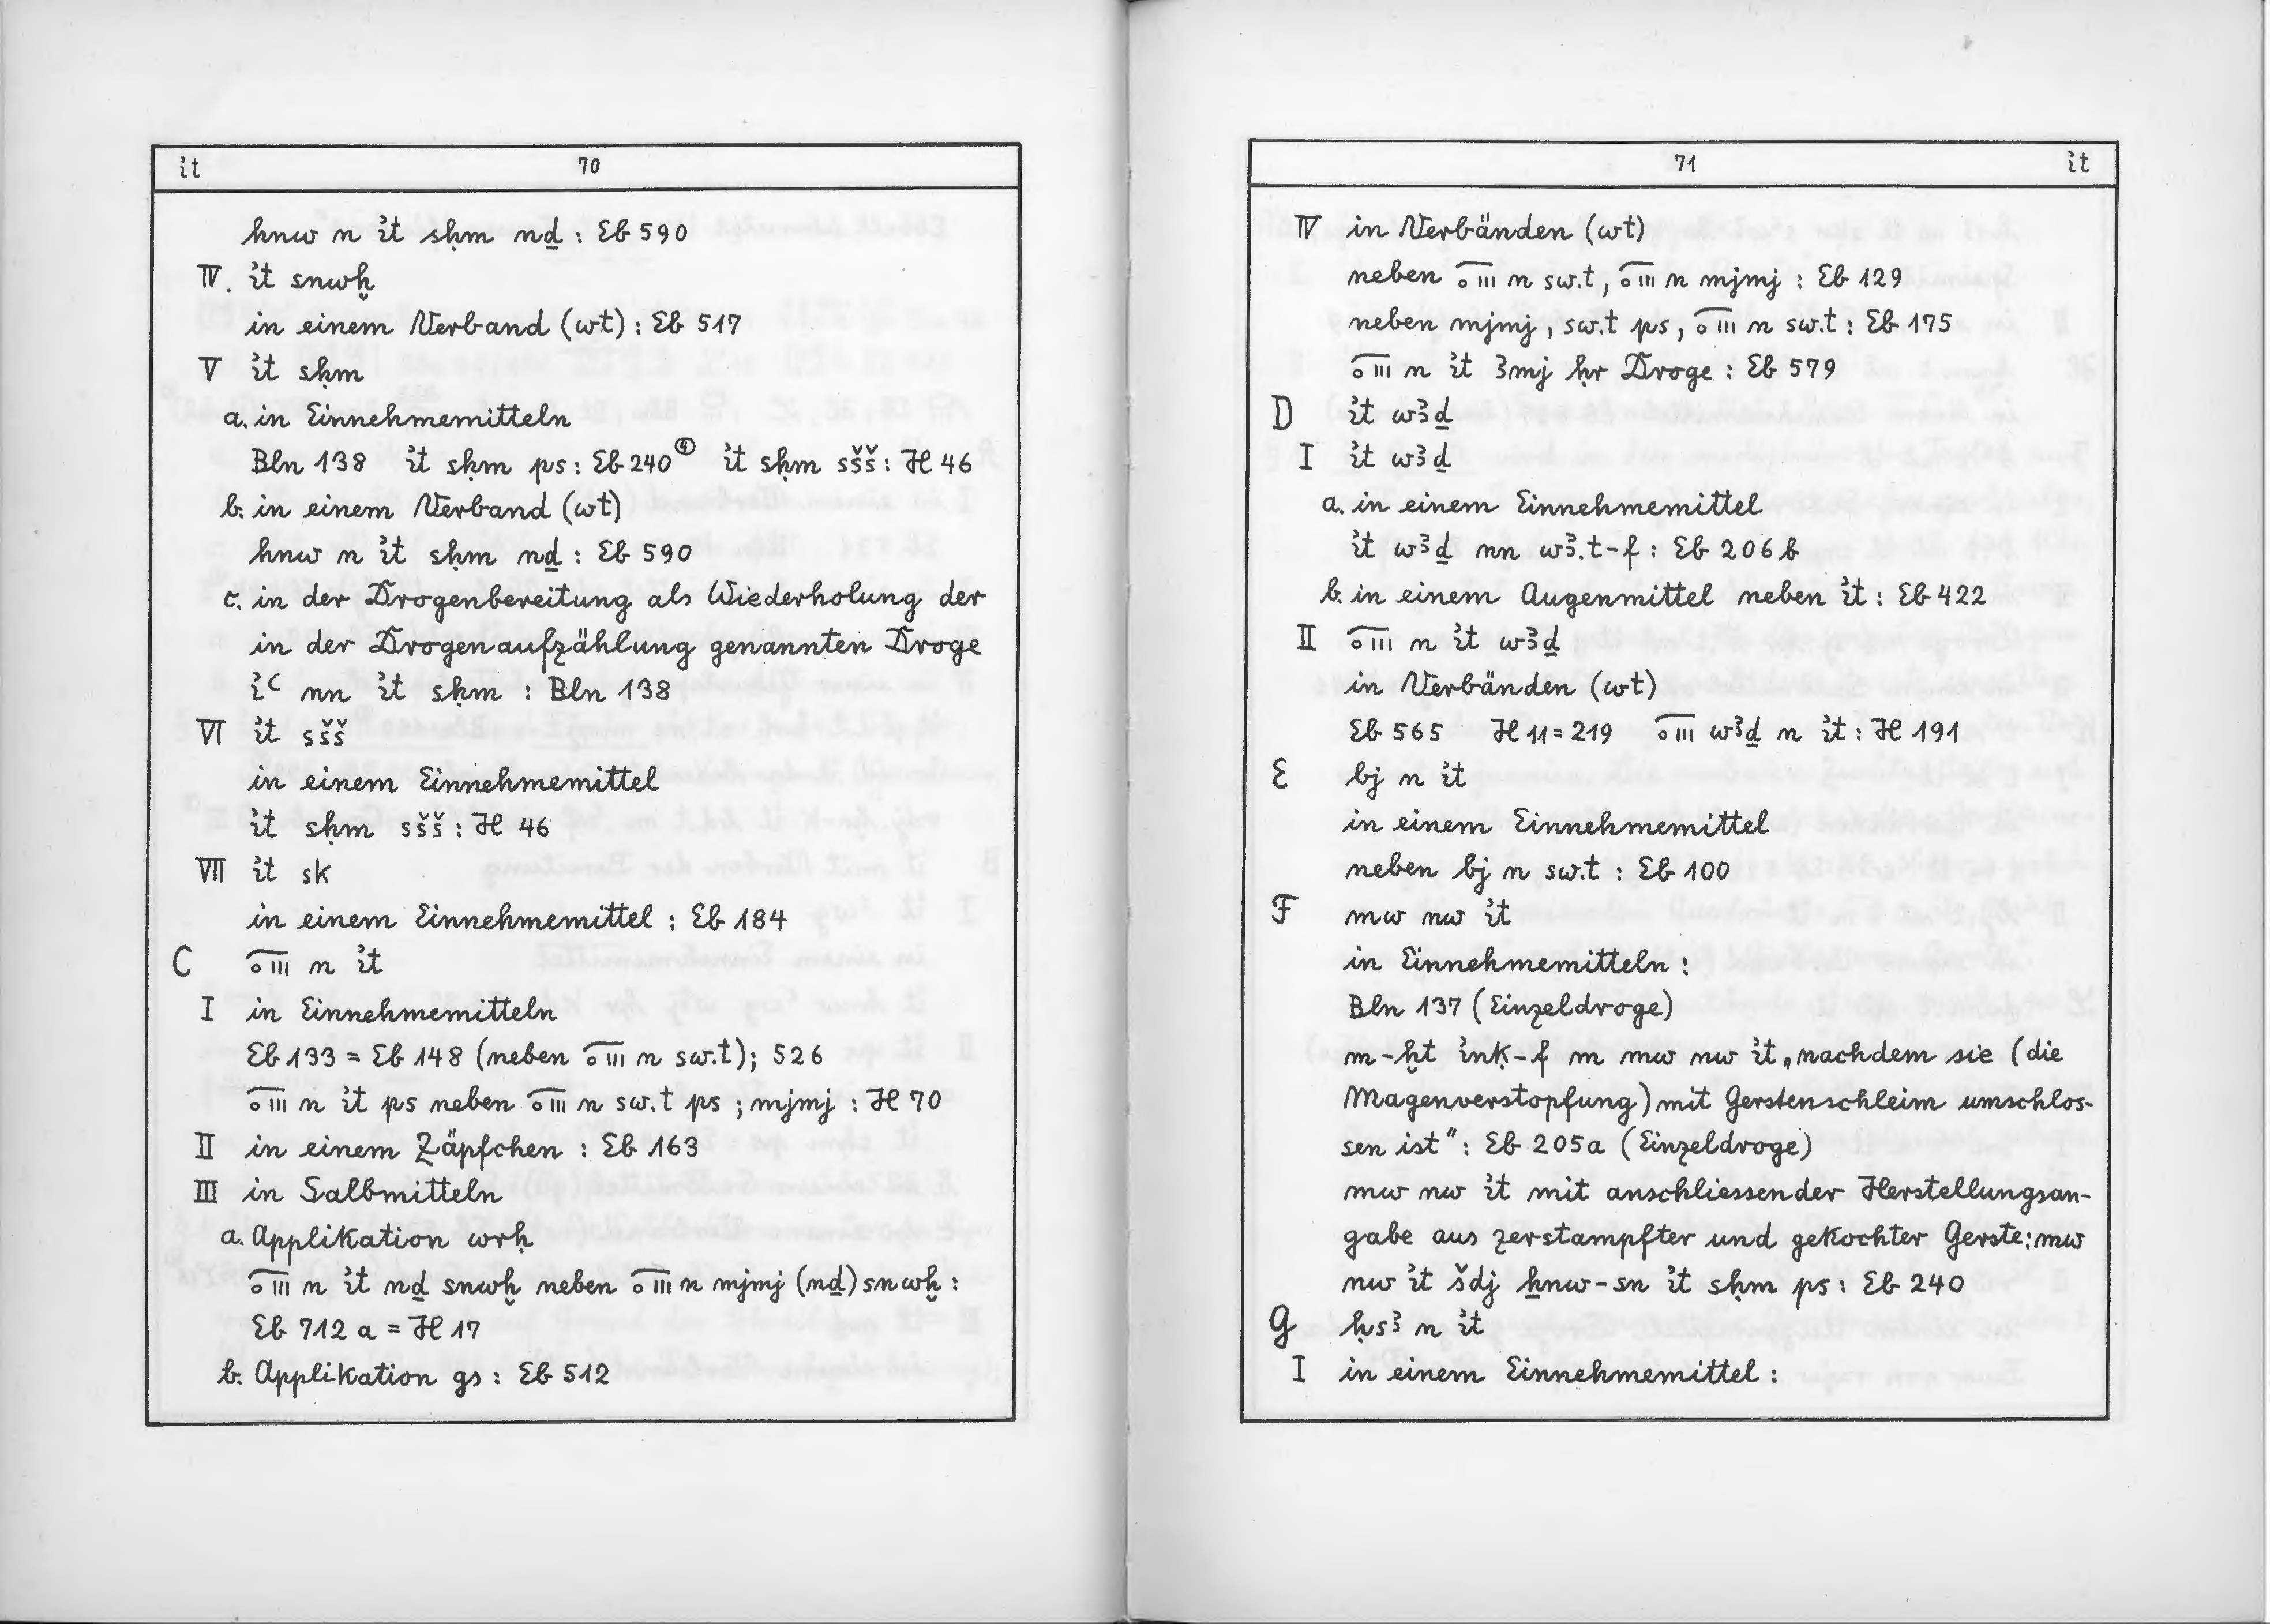 ỉt 70
hnw n ỉt sḥm nḏ : Eb 590
IV. ỉt snwḫ
in einem Verband (wt) : Eb 517
V ỉt sḥm
a. in Einnehmemitteln
Bln 138 ỉt sḥm ps : Eb 240④ ỉt sḥm sšš : H 46
b. in einem Verband (wt)
hnw n ỉt sḥm nḏ : Eb 590
c. in der Drogenbereitung als Wiederholung der
in der Drogenaufzählung genannten Droge
ỉꜥ nn ỉt sḥm : Bln 138
VI ỉt sšš
in einem Einnehmemittel
ỉt sḥm sšš : H 46
VII ỉt sk
in einem Einnehmemittel : Eb 184
C n ỉt
I in Einnehmemitteln
Eb 133 = Eb 148 (neben n sw.t); 526
n ỉt ps neben n sw.t ps ; mjmj : H 70
II in einem Zäpfchen : Eb 163
III in Salbmitteln
a. Applikation wrḥ
n ỉt nḏ snwḫ neben n mjmj (nḏ) snwḫ :
Eb 712 a = H 17
b. Applikation gs : Eb 512
71 ỉt
IV in Verbänden (wt)
neben n sw.t, n mjmj : Eb 129
neben mjmj, sw.t ps, n sw.t : Eb 175
n ỉt ꜣmj ḥr Droge : Eb 579
D ỉt wꜣḏ
I ỉt wꜣḏ
a. in einem Einnehmemittel
ỉt wꜣḏ nn wꜣ.t-f : Eb 206 b
b. in einem Augenmittel neben ỉt : Eb 422
II n ỉt wꜣḏ
in Verbänden (wt)
Eb 565 H 11 = 219 wꜣḏ n ỉt : H 191
E bj n ỉt
in einem Einnehmemittel
neben bj n sw.t : Eb 100
F mw nw ỉt
in Einnehmemitteln :
Bln 137 (Einzeldroge)
m-ḫt ỉnḳ-f m mw nw ỉt „nachdem sie (die
Magenverstopfung) mit Gerstenschleim umschlos-
sen ist“ : Eb 205a (Einzeldroge)
mw nw ỉt mit anschliessender Herstellungsan-
gabe aus zerstampfter und gekochter Gerste: mw
nw ỉt šdj ẖnw-sn ỉt sḥm ps : Eb 240
G ḥsꜣ n ỉt
I in einem Einnehmemittel :